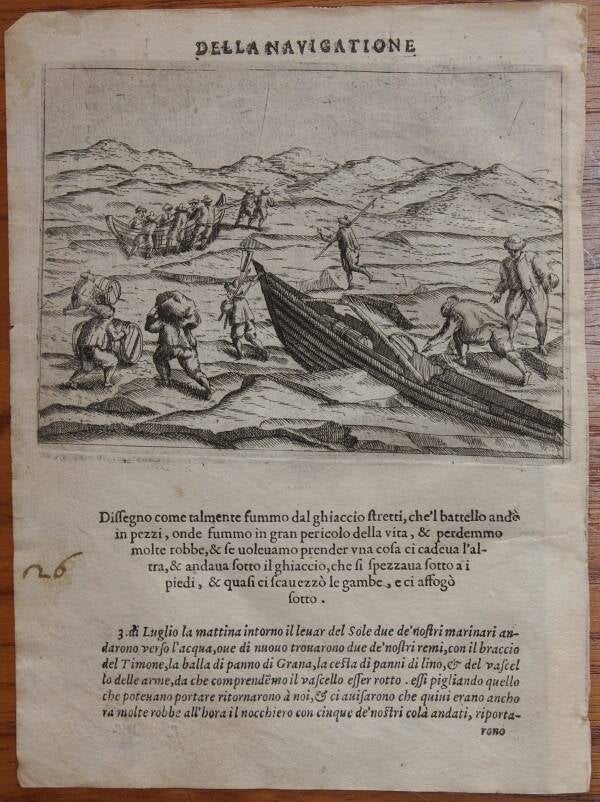 DELLA NAVIGATIONE
Dissegno come talmente fummo dal ghiaccio stretti, che'l battello andè
in pezzi, onde fummo in gran pericolo della vita, & perdemmo
molte robbe, & se voleuamo prender vna cosa ci cadeua l'al-
tra, & andaua sotto il ghiaccio, che si spezzaua sotto a i
piedi, & quasi ci scauezzò le gambe, e ci affogò
sotto.
26
3. di Luglio la mattina intorno il leuar del Sole due de'nostri marinari an-
darono verso l'acqua, oue di nuouo trouarono due de'nostri remi, con il braccio
del Timone, la balla di panno di Grana, la cesta di panni di lino, & del vascel
lo delle arme, da che comprendẽmo il vascello esser rotto. essi pigliando quello
che poteuano portare ritornarono à noi, & ci auisarono che quini erano ancho
ra molte robbe all'hora il nocchiero con cinque de'nostri colà andati, riporta-
rono